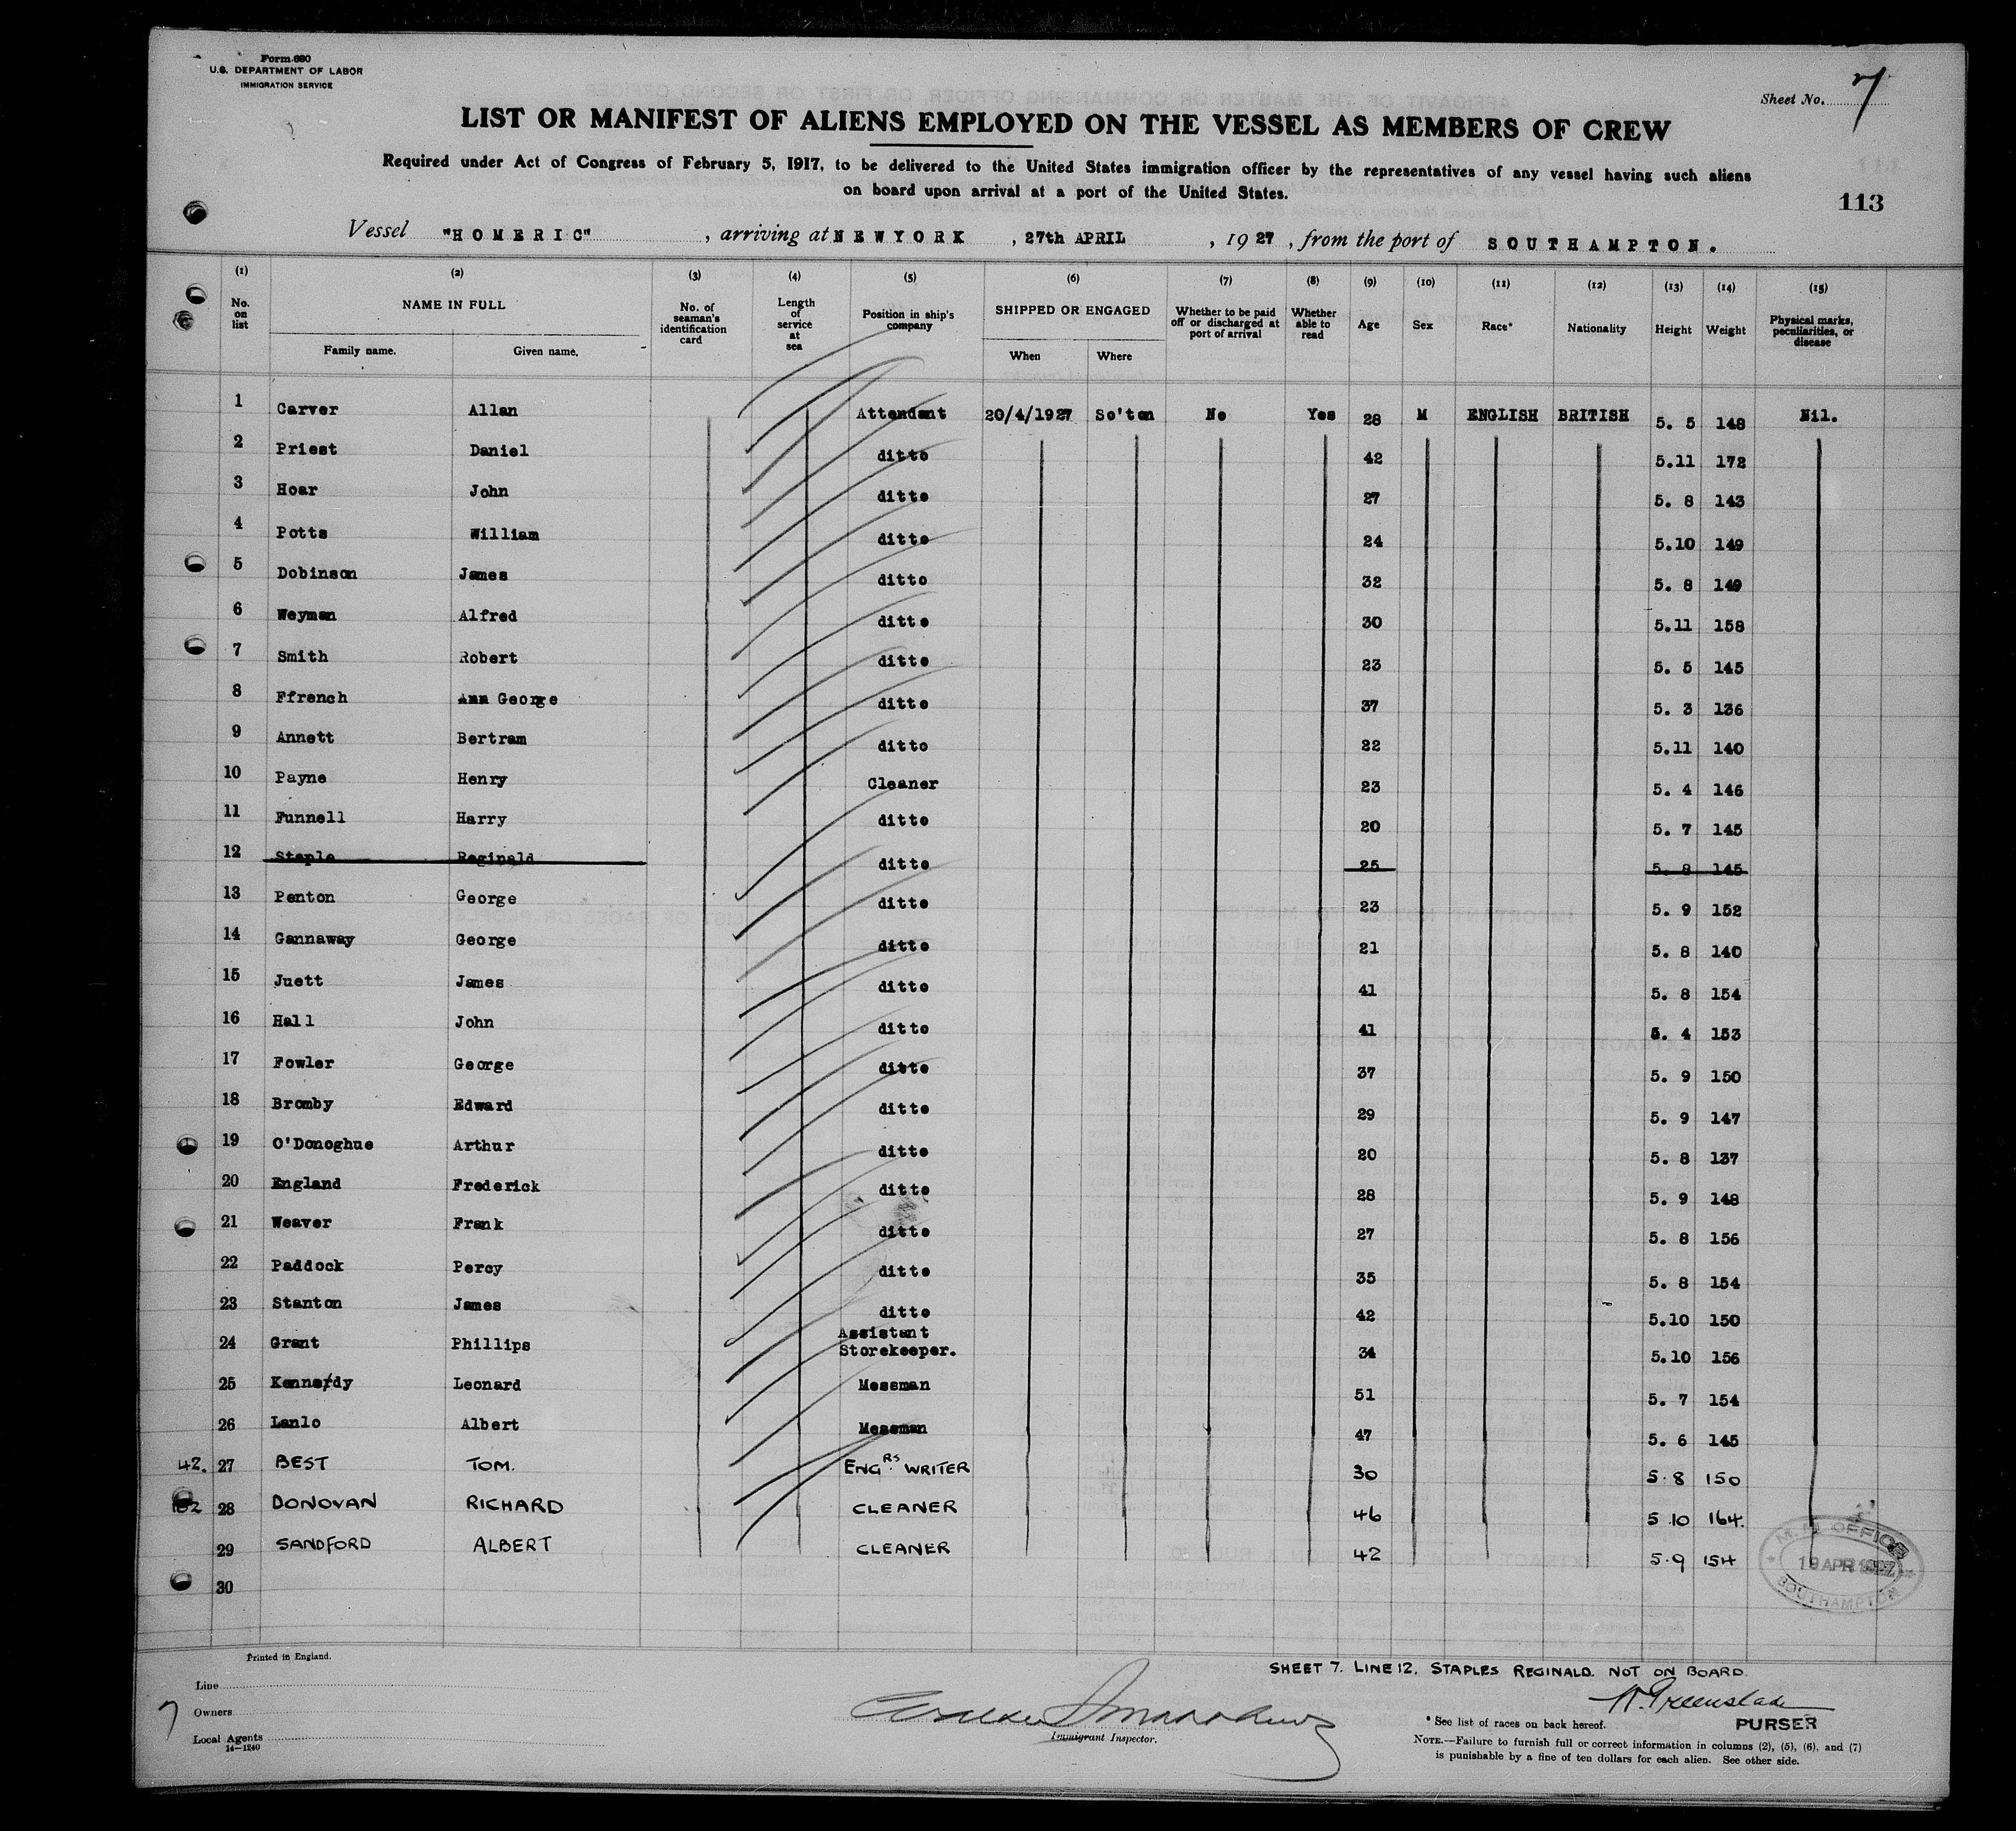 Form 680
U.S. DEPARTMENT OF LABOR
IMMIGRATION SERVICE
Sheet No. 7
LIST OR MANIFEST OF ALIENS EMPLOYED ON THE VESSEL AS MEMBERS OF CREW
Required under Act of Congress of February 5, 1917, to be delivered to the United States immigration officer by the representatives of any vessel having such aliens
on board upon arrival at a port of the United States.
113
Vessel "HOMERIC", arriving at NEWYORK, 27th APRIL, 1927, from the port of SOUTHAMPTON.
(1) (2) (3) (4) (5) (6) (7) (8) (9) (10) (11) (12) (13) (14) (15)
No. on list NAME IN FULL Family name. Given name. No. of seaman's identification card Length of service at sea Position in ship's company SHIPPED OR ENGAGED When Where Whether to be paid off or discharged at port of arrival Whether able to read Age Sex Race* Nationality Height Weight Physical marks, peculiarities, or disease
1 Carver Allan Attendant 20/4/1927 So'ton No Yes 28 M ENGLISH BRITISH 5. 5 148 Nil.
2 Priest Daniel ditto 42 5.11 172
3 Hoar John ditto 27 5. 8 143
4 Potts William ditto 24 5.10 149
5 Dobinson James ditto 32 5. 8 149
6 Weyman Alfred ditto 30 5.11 158
7 Smith Robert ditto 23 5. 5 145
8 Ffrench George ditto 37 5. 3 136
9 Annett Bertram ditto 22 5.11 140
10 Payne Henry Cleaner 23 5. 4 146
11 Funnell Harry ditto 20 5. 7 145
12 Staple Reginald ditto 25 5. 8 145
13 Penton George ditto 23 5. 9 152
14 Gannaway George ditto 21 5. 8 140
15 Juett James ditto 41 5. 8 154
16 Hall John ditto 41 5. 4 153
17 Fowler George ditto 37 5. 9 150
18 Bromby Edward ditto 29 5. 9 147
19 O'Donoghue Arthur ditto 20 5. 8 137
20 England Frederick ditto 28 5. 9 148
21 Weaver Frank ditto 27 5. 8 156
22 Paddock Percy ditto 35 5. 8 154
23 Stanton James ditto 42 5.10 150
24 Grant Phillips Assistant Storekeeper. 34 5.10 156
25 Kennedy Leonard Messman 51 5. 7 154
26 Lanlo Albert Messman 47 5. 6 145
42. 27 BEST TOM. ENGRS WRITER 30 5.8 150
28 DONOVAN RICHARD CLEANER 46 5 10 164.
29 SANDFORD ALBERT CLEANER 42 5.9 154
30
OFFICE
19 APR
SOUTHAMPTON
Printed in England.
SHEET 7. LINE 12. STAPLES REGINALD. NOT ON BOARD.
Line
7
Owners
Local Agents
14—1240
Immigrant Inspector.
W. Greenslade
PURSER
* See list of races on back hereof.
NOTE.—Failure to furnish full or correct information in columns (2), (5), (6), and (7)
is punishable by a fine of ten dollars for each alien. See other side.